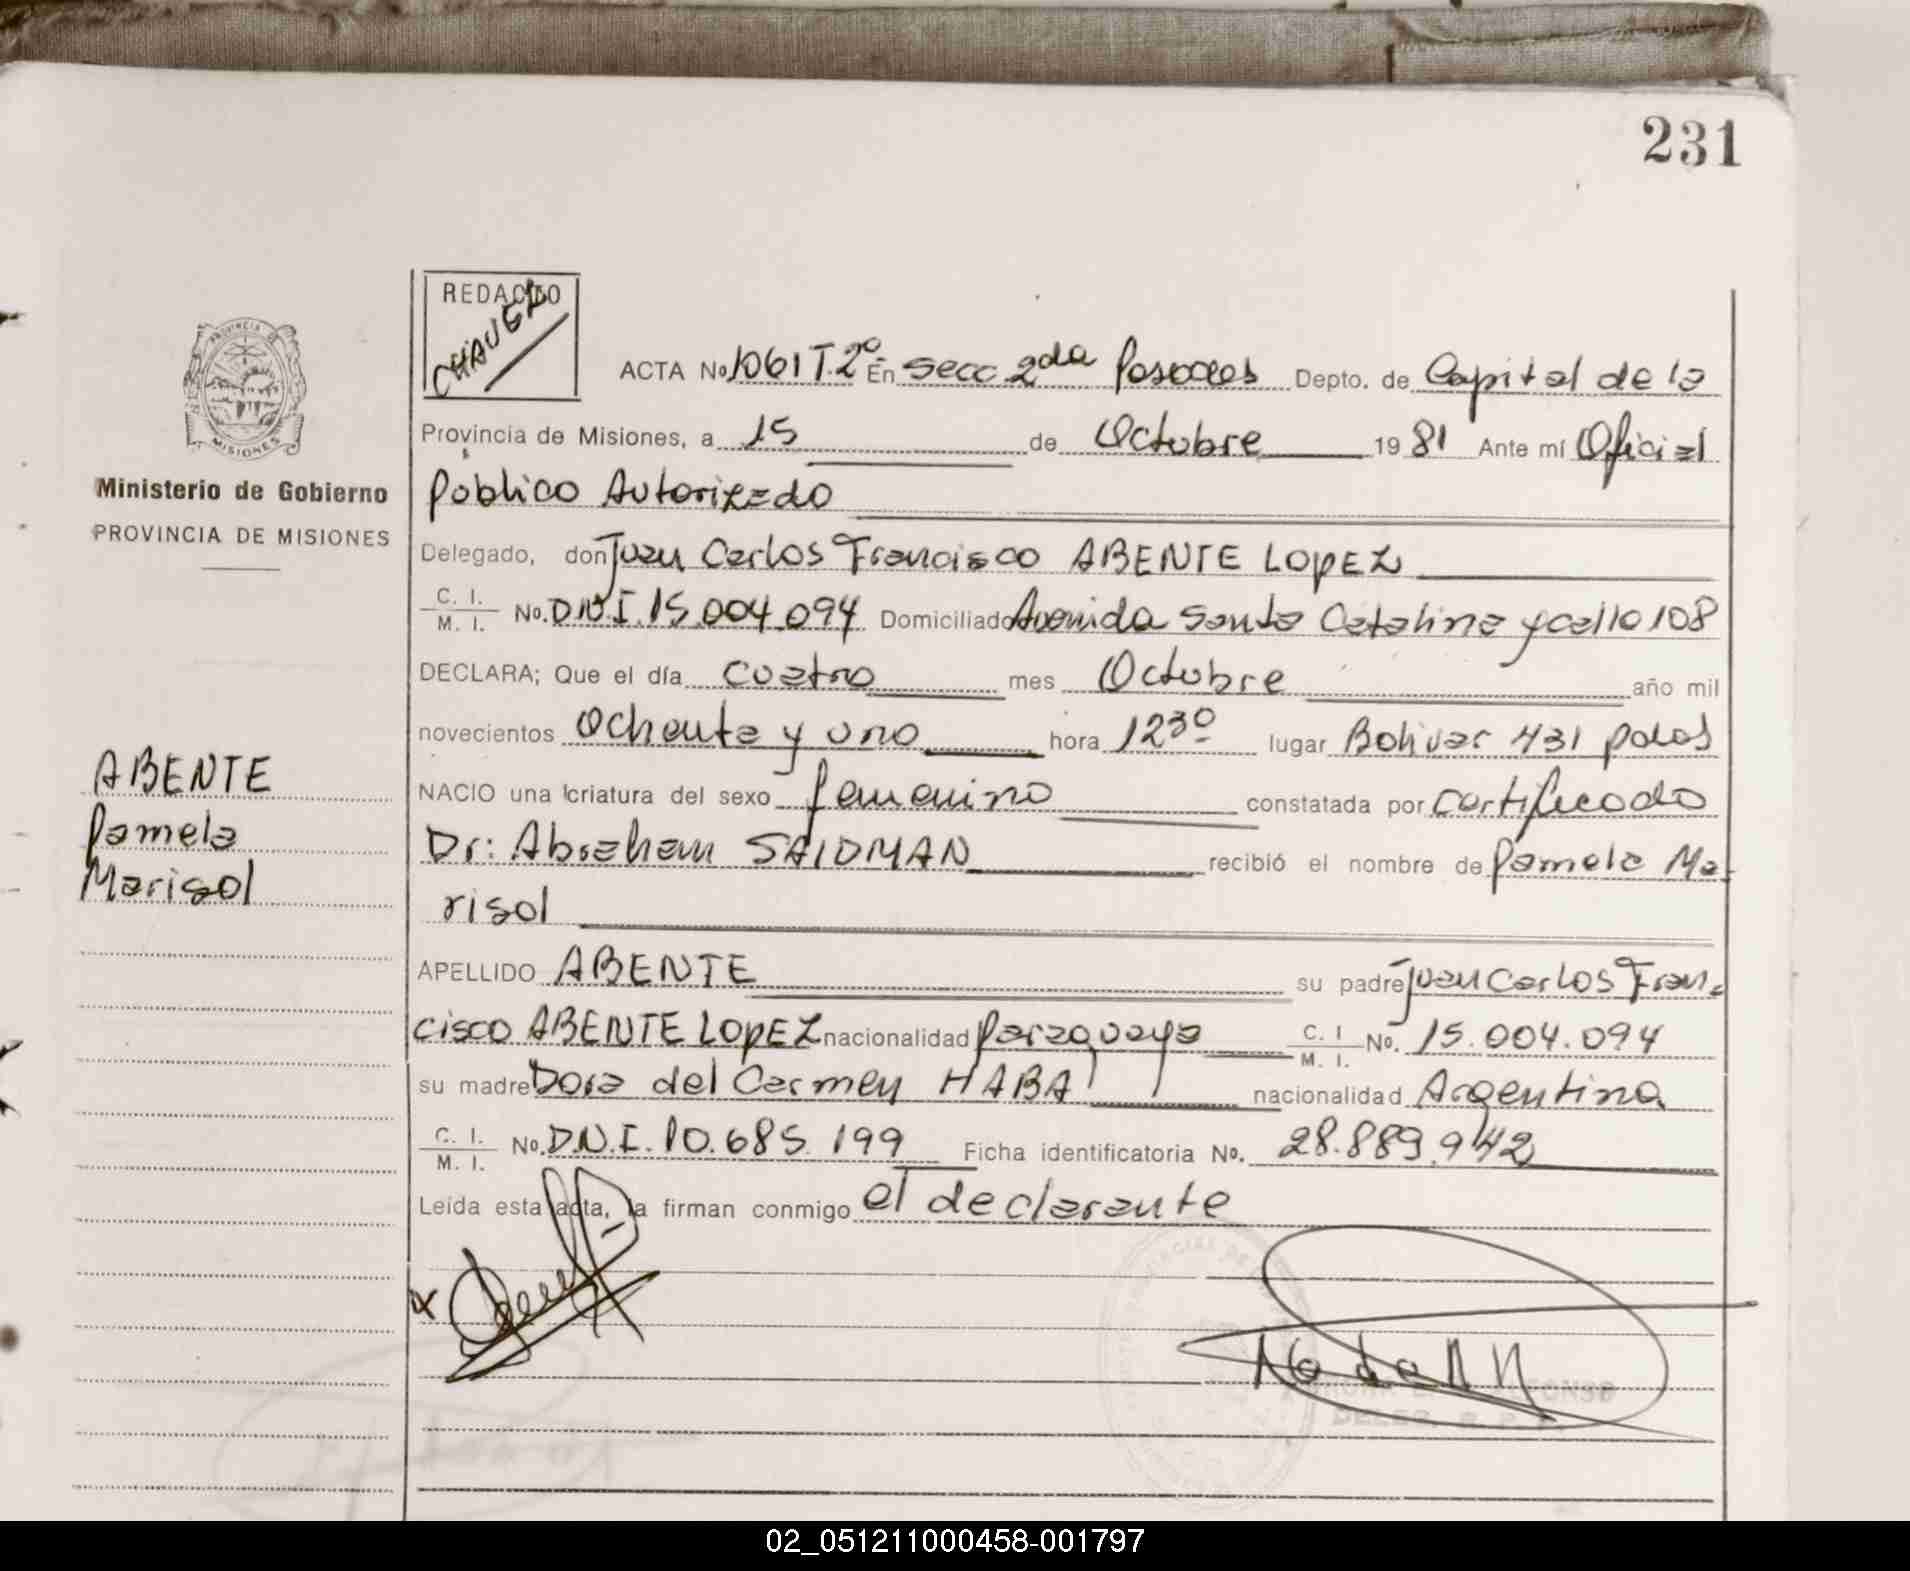 231
REDACTO
CHAVEZ
ACTA No 1061 T.2º En Secc 2da Posadas Depto. de Capital de la
Provincia de Misiones, a 15 de Octubre 1981 Ante mí Oficial
Público Autorizado
PROVINCIA DE
MISIONES
Ministerio de Gobierno
PROVINCIA DE MISIONES
Delegado, don Juan Carlos Francisco ABENTE LOPEZ
C. I.
M. I. No. D.N.I. 15.004.094 Domiciliado Avenida Santa Catalina y calle 108
DECLARA; Que el día cuatro mes Octubre año mil
novecientos Ochenta y uno hora 12³⁰ lugar Bolivar 431 pdas
NACIO una criatura del sexo femenino constatada por certificado
Dr: Abraham SAIDMAN recibió el nombre de Pamela Ma-
risol
ABENTE
Pamela
Marisol
APELLIDO ABENTE su padre Juan Carlos Fran-
cisco ABENTE LOPEZ nacionalidad Paraguaya C. I
M. I. No. 15.004.094
su madre Dora del Carmen HABA nacionalidad Argentina
C. I.
M. I. No. D.N.I. 10.685.199 Ficha identificatoria No. 28.889.942
Leída esta acta, la firman conmigo el declarante
DELEG. R. P.
02_051211000458-001797